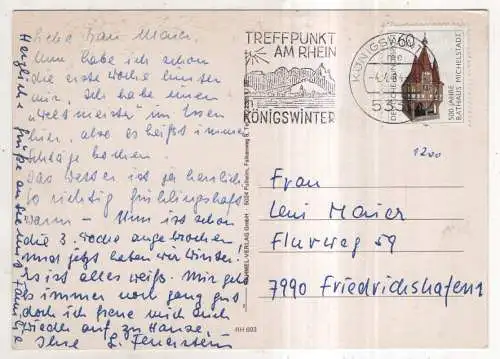 Liebe Frau Maier.
Nun habe ich schon
die erste Woche hinter
mir. Ich habe einen
Weltmeister im Essen
hier, also es heißt immer
Schläge kochen.
Das Wetter ist ja herrlich
so richtig frühlingshaft
warm – Nun ist schon
die 3. Woche angebrochen
und jetzt haben wir Winter.
Es ist alles weiß. Mir geht
es immer noch ganz gut
doch ich freue mich auch
wieder auf zu Hause.
Ihre L. Feuerstein
Herzliche Grüße an die Familie
TREFFPUNKT
AM RHEIN
KÖNIGSWINTER
KÖNIGSW
533
60
DEUTSCHE BUNDESPOST
500 JAHRE
RATHAUS MICHELSTADT
1200
Frau
Leni Maier
Flurweg 59
7990 Friedrichshafen
RH 693